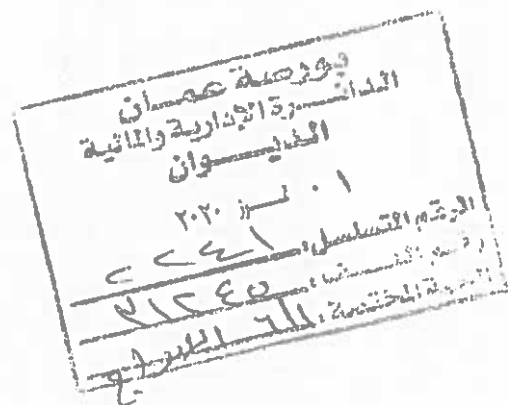 بورصة عمان
الدائرة الإدارية والمالية
الديوان
٠١ تموز ٢٠٢٠
الرقم المتسلسل: ٢٢٤١
رقم الملف: ٣١٢٤٥
الجهة المختصة: